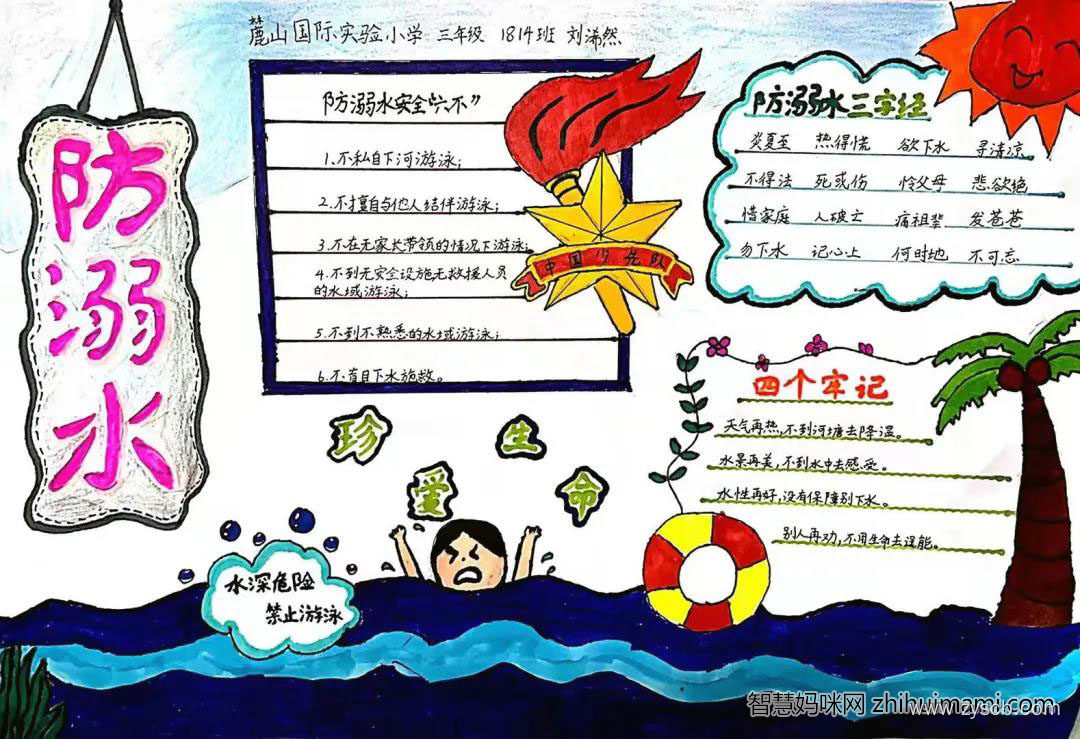 麓山国际实验小学 三年级 1814班 刘浠然
防溺水
防溺水安全“六不”
1.不私自下河游泳；
2.不擅自与他人结伴游泳；
3.不在无家长带领的情况下游泳；
4.不到无安全设施无救援人员
的水域游泳；
5.不到不熟悉的水域游泳；
6.不盲目下水施救。
中国少先队
防溺水三字经
炎夏至 热得慌 欲下水 寻清凉
不得法 死或伤 怜父母 悲欲绝
惜家庭 人破亡 痛祖辈 发苍苍
勿下水 记心上 何时地 不可忘
四个牢记
天气再热，不到河塘去降温。
水景再美，不到水中去感受。
水性再好，没有保障别下水。
别人再劝，不用生命去逞能。
珍爱生命
水深危险
禁止游泳
智慧妈咪网 zhihuimami.com